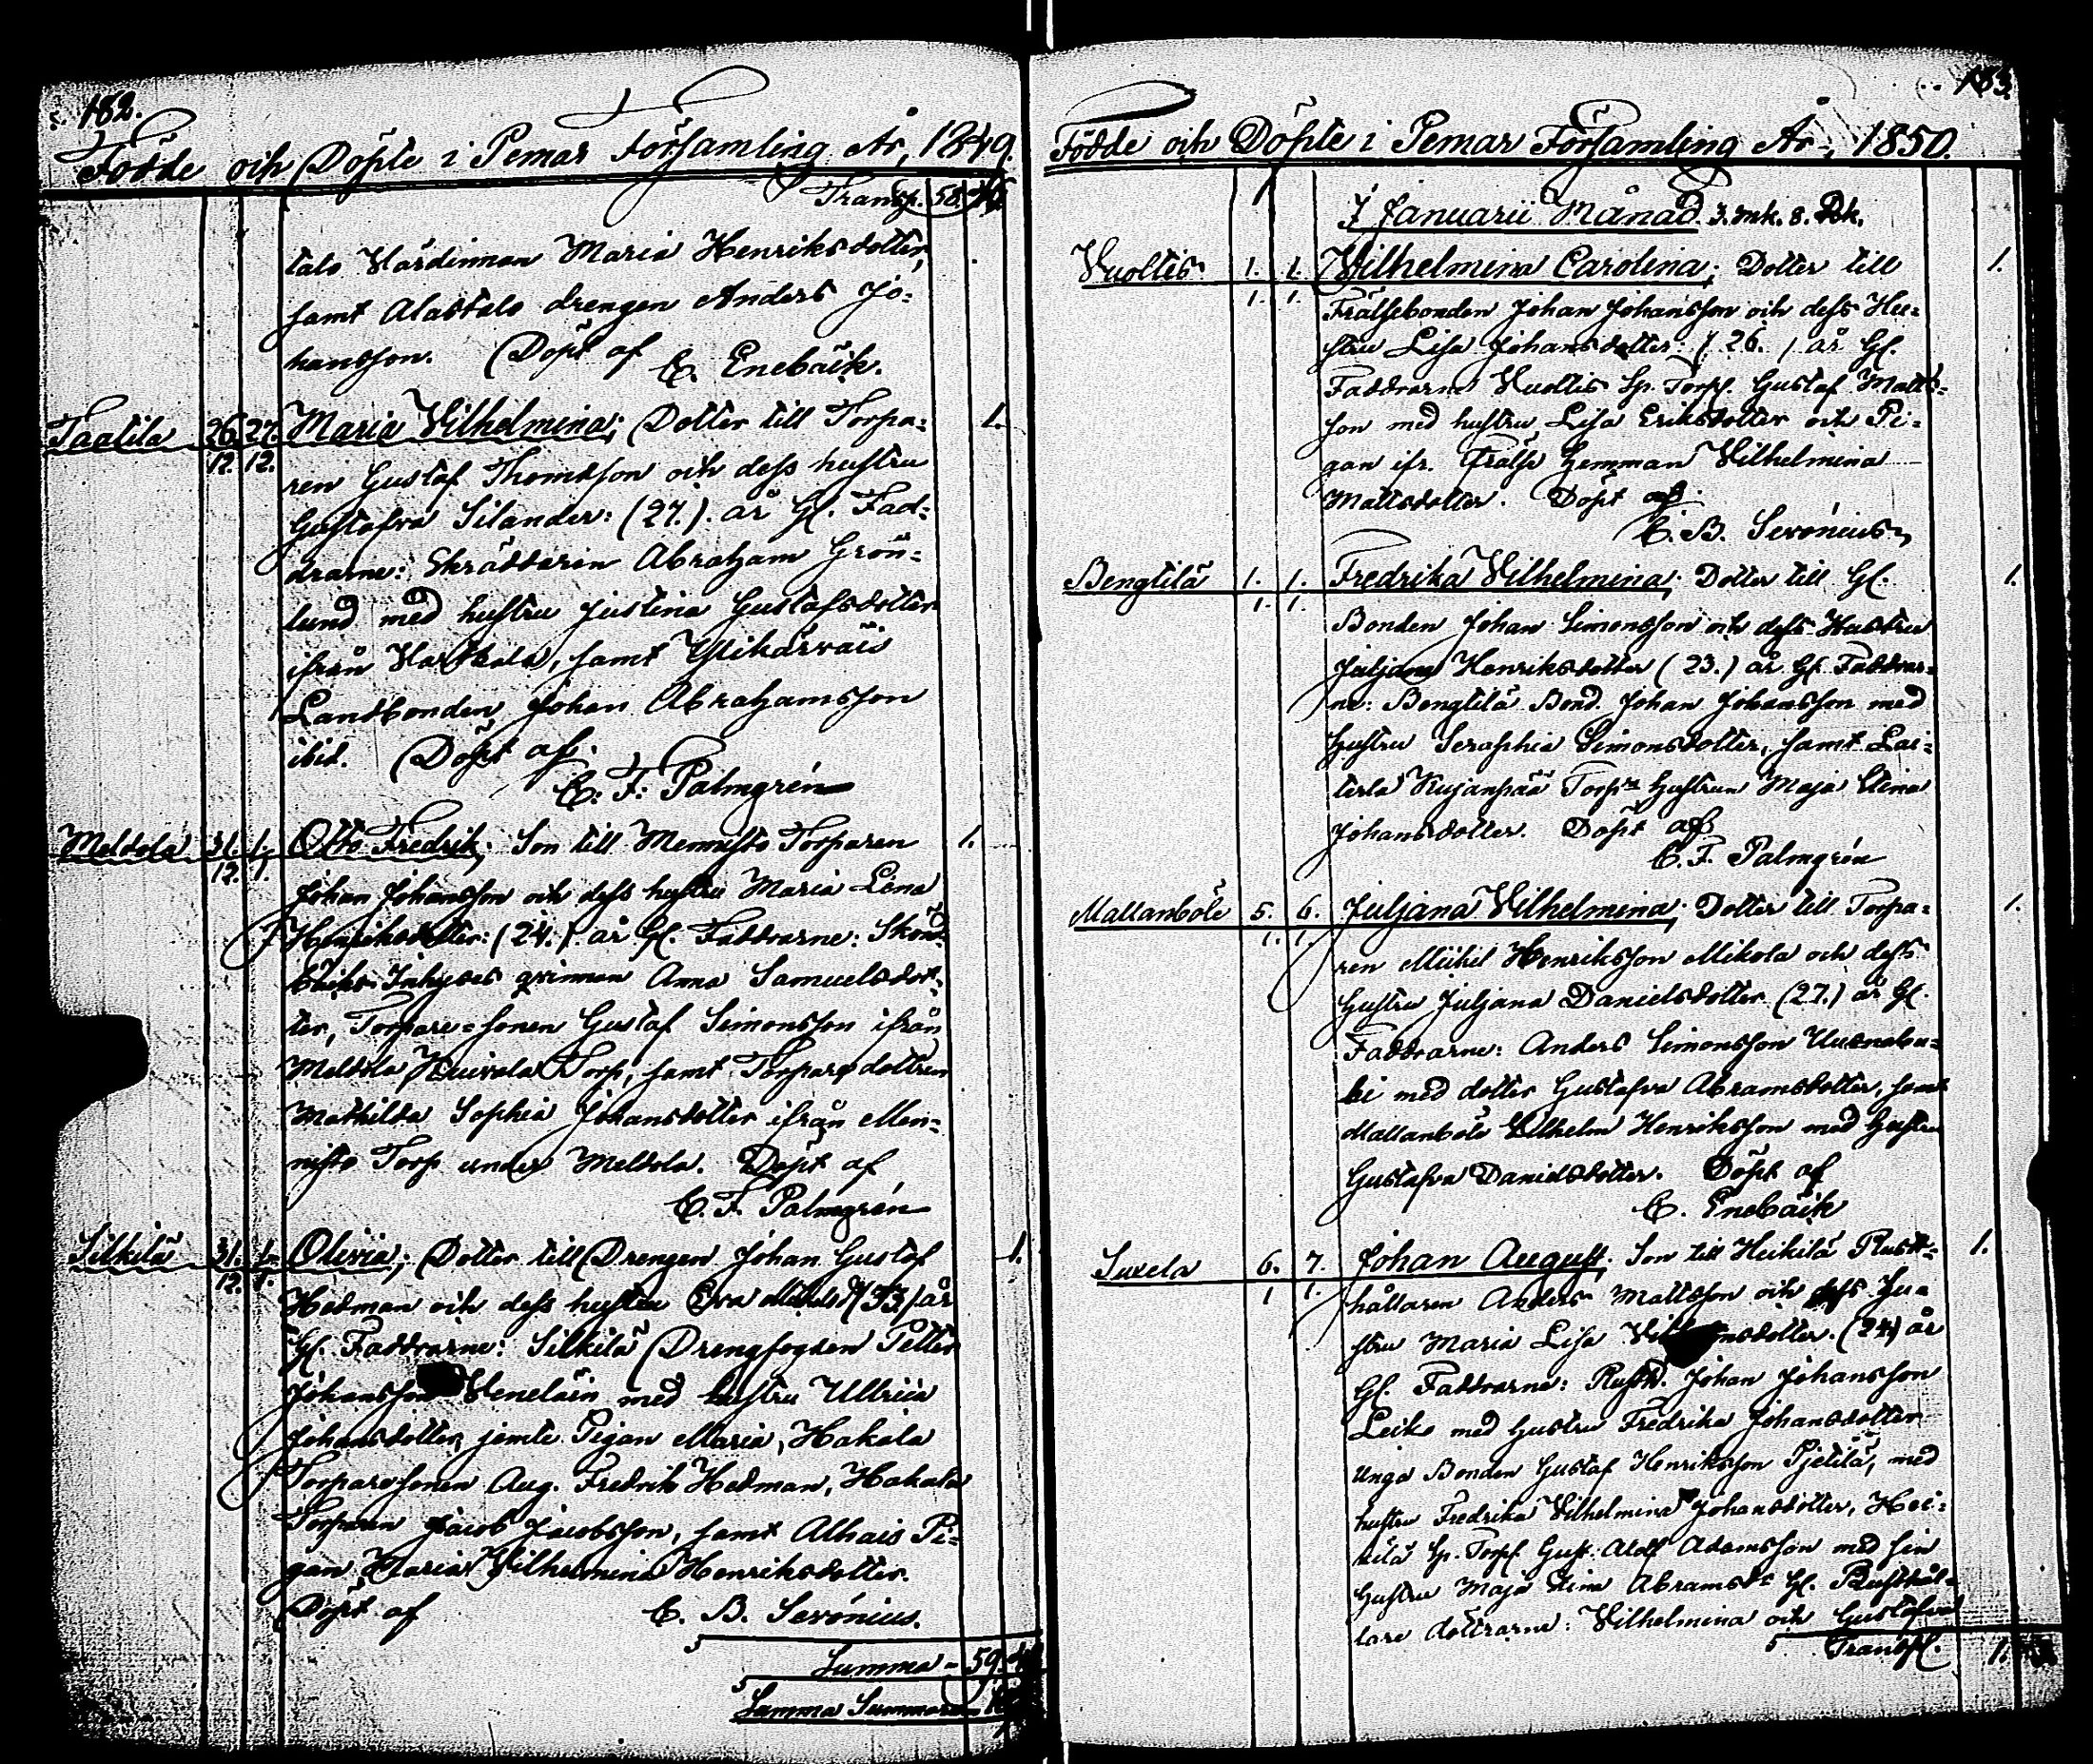 182.
Födde och Döpte i Pemar Församling År, 1849.
Transp. 58.
talo Värdinnan Maria Henriksdotter,
samt Alastalo drengen Anders Jo=
hansson. Döpt af
C. Enebäck.
Taatila 26. 27. Maria Vilhelmina; Dotter till Torpa= 1.
12. 12.
ren Gustaf Thomasson och dess hustru
Gustafva Silander: (27.) år Gl. Fad=
drarne: Skräddaren Abraham Grön=
lund med hustru Justina Gustafsdotter
ifrån samt
Landbonden Johan Abrahamsson
ibid. Döpt af.
C. F. Palmgrén
Meldola 31. 1. Otto Fredrik; Son till Mennisto Torparen 1.
12. 1.
Johan Johansson och dess hustru Maria Lena
Henriksdotter: (24.) år Gl. Faddrarne:
Inhyses qvinnan Anna Samuelsdot=
ter, Torpare=sonen Gustaf Simonsson ifrån
Meldola Huivala Torp, samt Torpare dottren
Mathilda Sophia Johansdotter ifrån Men=
nisto Torp under Meldola. Döpt af
C. F. Palmgrén
Silkilä 31. 1. Olivia; Dotter till Drengen Johan Gustaf 1.
12. 1.
Hedman och dess hustru Eva (33.) år
Gl. Faddrarne: Silkilä Drengfogden Petter
Johansson med hustru Ullrica
Johansdotter, jemte Pigan Maria, Hakala
Torparesonen Aug. Fredrik Hedman, Hakala
Torparen Jacob Jacobsson, samt Alhais Pi=
gan Maria Vilhelmina Henriksdotter.
Döpt af C. B. Serónius.
Summa - 59.
Summa Summarum
183.
Födde och Döpte i Pemar Församling År, 1850.
I Januarii Månad. 3. mk. 8. Qk.
Vuoltis 1. 1. Wilhelmina Carolina; Dotter till 1.
1. 1.
Frälsebonden Johan Johansson och dess Hu=
stru Lisa Johansdotter: (26.) år Gl.
Faddrarne Vuoltis Sp. Torp. Gustaf Matts=
son med hustru Lisa Eriksdotter och Pi=
gan ifr. Frälse Hemman Vilhelmina
Mattsdotter. Döpt af.
C. B. Serónius
Bengtilä 1. 1. Fredrika Vilhelmina; Dotter till Gl. 1.
1. 1.
Bonden Johan Simonsson och dess Hustru
Juljana Henriksdotter (23.) år Gl. Faddrar=
ne: Bengtilä Bond. Johan Johansson med
hustru Seraphia Simonsdotter, samt Lai=
terla Kujanpää Torp:s hustrun Maja Stina
Johansdotter. Döpt af
C. F. Palmgrén
Mallanböle 5. 6. Juljana Vilhelmina; Dotter till Torpa= 1.
1. 1.
ren Mickel Henriksson Mikola och dess
hustru Juljana Danielsdotter (27.) år Gl.
Faddrarne: Anders Simonsson
med dotter Gustafva Abramsdotter, samt
Mallanböle Vilhelm Henriksson med hustru
Gustafva Danielsdotter. Döpt af
C. Enebäck
Suxela 6. 7. Johan August. Son till Heikilä Rust= 1.
1 1.
hållaren Anders Mattsson och dess Hu=
stru Maria Lisa (24) år
Gl. Faddrarne: Rusth. Johan Johansson
Leiko med hustru Fredrika Johansdotter
Unga Bonden Gustaf Henriksson Pjetilä, med
hustru Fredrika Vilhelmina Johansdotter, Hei=
kilä Sp. Torp. Gust. Adolf Adamsson med sin
hustru Maja Stina Abramsdr Gl. Rusthål=
lare dottrarne: Vilhelmina och Gustafva
Transp. 1.